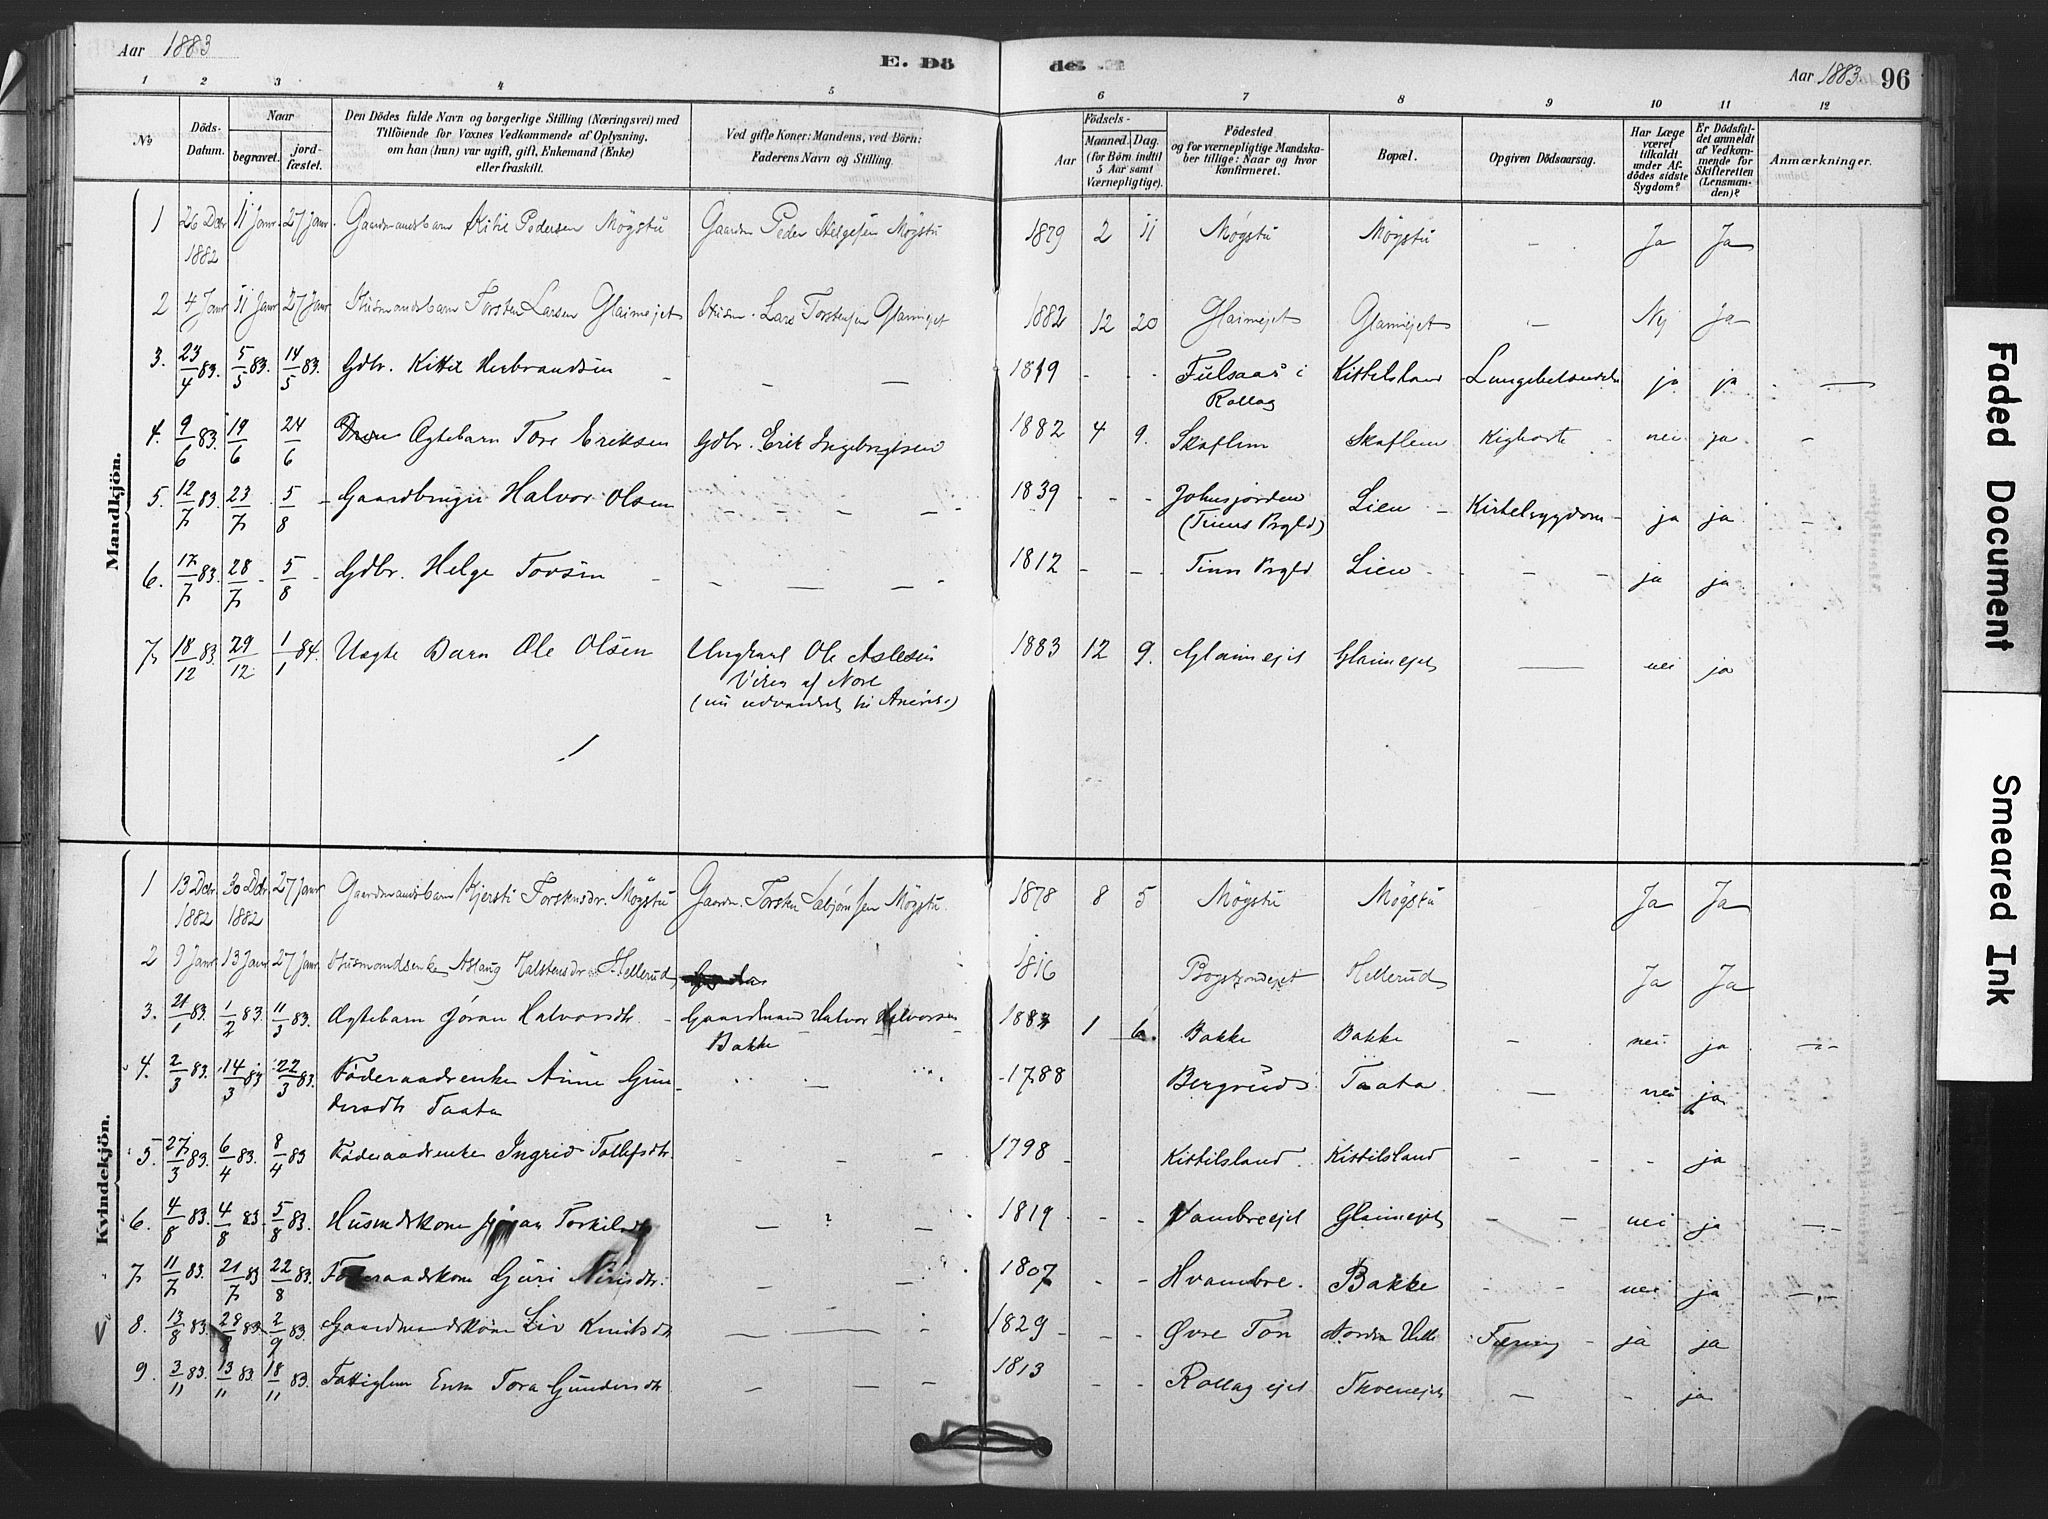 Aar 1883
E. Dö
des.
Aar 1883. 96
1 2 3 4 5 6 7 8 9 10 11 12
No
Döds-Datum.
Naar
begravet.
jordfæstet.
Den Dödes fulde Navn og borgerlige Stilling (Næringsvei) med
Tilföiende for Voxnes Vedkommende af Oplysning,
om han (hun) var ugift, gift, Enkemand (Enke)
eller fraskilt.
Ved gifte Koner: Mandens, ved Börn:
Faderens Navn og Stilling.
Födsels-
Aar
Maaned.
Dag.
(for Börn indtil
5 Aar samt
Værnepligtige).
Födested
og for værnepligtige Mandska-
ber tillige: Naar og hvor
konfirmeret.
Bopæl.
Opgiven Dödsaarsag.
Har Læge
været
tilkaldt
under Af-
dödes sidste
Sygdom?
Er Dödsfal-
det anmeldt
af Vedkom-
mende for
Skifteretten
(Lensman-
den)?
Anmærkninger.
Mandkjön.
1 26 Dcbr 1882 11 Janr 27 Janr Gaardmandsbarn Kitil Pedersen Møgstu Gaardm Peder Helgesen Møgstu 1879 2 11 Møgstu Møgstu - Ja Ja
2 4 Janr 11 Janr 27 Janr Husmandsbarn Torsten Larsen Glaimejet Husm. Lars Torstensen Glaimejet 1882 12 20 Glaimejet Glaimejet - Nej Ja
3. 23/4 83. 5/5 83. 14/5 83. Gdbr. Kittil Herbrandsen - - - 1819 - - - Fulsaas i Rollag Kittilsland Lungebetændelse ja ja. -
4. 9/6 83. 19/6 24/6 Ægtebarn Tore Eriksen Gdbr. Erik Ingebrigtsen 1882 4 9. Skaflem Skaflem Kighoste nei ja -
5. 12/7 83. 23/7 5/8 Gaardbruger Halvor Olsen - - - 1839 - - - Johnsjorden (Tinns Prgld) Lien Kirtelsygdom ja ja -
6. 17/7 83. 28/7 5/8 Gdbr. Helge Tovsen - - - 1812 - - - Tinn Prgld Lien - - ja ja
7 18/12 83. 29/12 1/1 84. Uægte Barn Ole Olsen Ungkarl Ole Aslesen
af Nore
(nu udvandret til Amerika) 1883 12 9. Glaimejet Glaimejet - nei ja
Kvindekjön.
1 13 Dcbr 1882 30 Dcbr 1882 27 Janr Gaardmandsbarn Kjersti Torstensdr. Møgstu Gaardm. Torsten Sebjørnsen Møgstu 1878 8 5 Møgstu Møgstu Ja Ja
2 9 Janr 13 Janr 27 Janr Husmandsenke Aslaug Halstensdr Hellerud 1816 Hellerud Ja Ja
3. 21/1 83. 1/2 83. 11/3 83. Ægtebarn Jøran Halvorsdtr. Gaardmand Halvor Halvorsen
Bakke 1 6. Bakke Bakke - nei. ja
4. 2/3 83. 14/3 83 22/3 83. Føderaadsenke Anne Gun-
dersdtr Taata - 1788 Bergrud Taata. - nei ja
5. 27/3 83. 6/4 83. 8/4 83 Føderaadsenke Ingrid Tollefsdtr. - - - 1798 - Kittilsland. Kittilsland - - - ja
6. 4/8 83. 4/8 83 5/8 83. Husmdskone Jøran Torkilsdtr - ? - 1819 - - Vambreejet Glaimejet - - nei ja
7 11/7 83. 21/7 83 22/8 83. Føderaadskone Guri Nirisdtr. - - - 1807 - - Hvambre. Bakke - - nei ja
8. 13/8 83. 28/8 83 2/9 83. Gaardmandskone Liv Knutsdtr - - - 1829 - - Øvre Ton Nordre Tæring ja ja
9. 3/11 83. 13/11 83 18/11 83. Fattiglem Enke Tora Gundersdtr - - - 1813 - - Rollag ejet - - ja
Faded Document
Smeared Ink